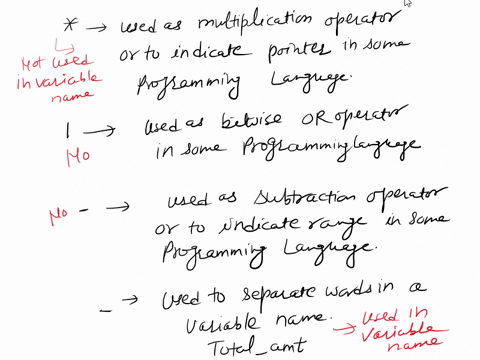 * → used as multiplication operator
or to indicate pointer in some
Programming Language.
Not used
in variable
name
| → used as bitwise OR operator
in some Programming language
No
No - → used as subtraction operator
or to indicate range in some
Programming Language.
_ → used to separate words in a
variable name.
Total_amt
→ used in
variable
name